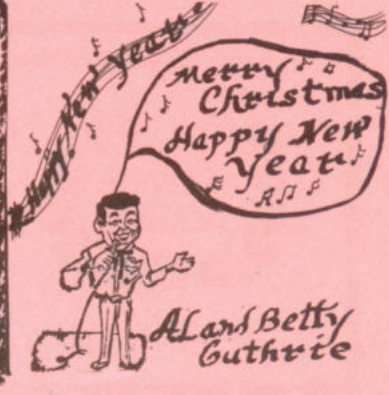 Happy New Year
Merry
Christmas
Happy New
Year
Al and Betty
Guthrie